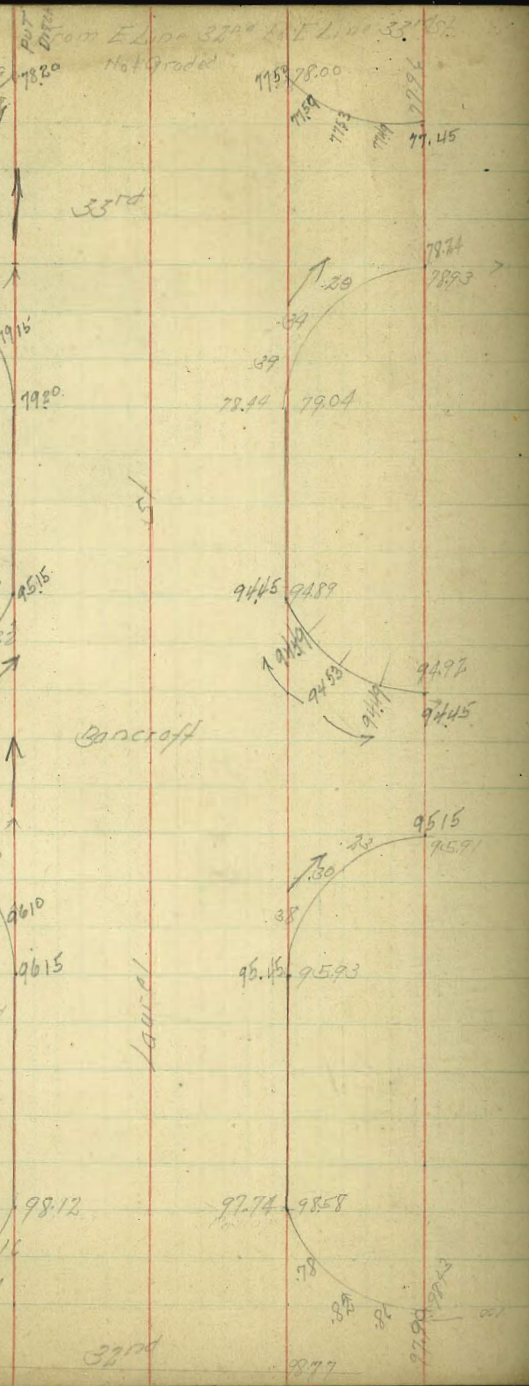 From E Line 32nd to E Line 33rd St
Not Graded
PUT
DITCH
78.20
77.50 78.00
77.50
77.53
77.49
77.96
77.45
33rd
78.74
78.93
.29
.34
.39
79.15
79.20
78.44 79.04
St
95.15
94.45 94.89
94.49
94.53
94.49
94.92
94.45
Bancroft
95.15
95.91
.23
.30
.38
96.10
96.15
95.45 95.93
Laurel
98.12
97.74 98.58
.78
.82
.78
98.43
97.90
32nd
98.77